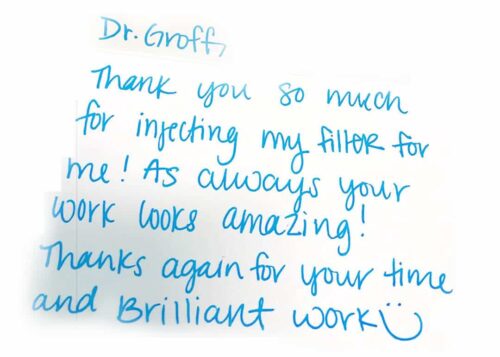 Dr. Groff,
Thank you so much
for injecting my filler for
me! As always your
work looks amazing!
Thanks again for your time
and Brilliant work :)